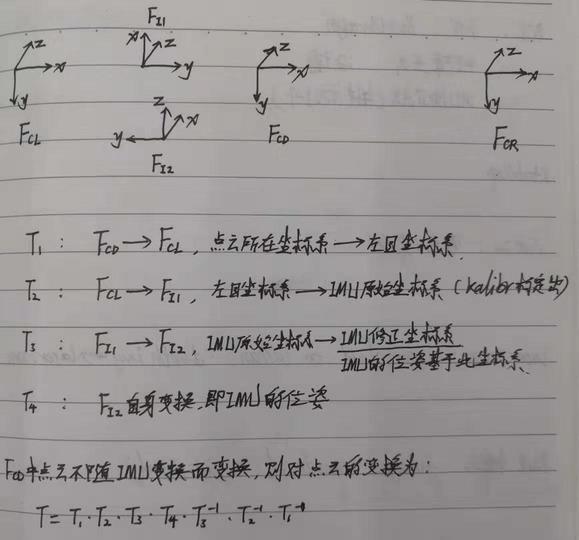 F_I1
z x y
x z y
z x y
z x y
F_CL
z x y
F_I2
F_CD
F_CR
T₁ : F_CD → F_CL, 点云所在坐标系 → 左目坐标系.
T₂ : F_CL → F_I1, 左目坐标系 → IMU原始坐标系 (kalibr标定出)
T₃ : F_I1 → F_I2, IMU原始坐标系 → IMU修正坐标系
IMU的位姿基于此坐标系.
T₄ : F_I2 自身变换, 即IMU的位姿
F_CD中点云不随IMU变换而变换, 则对点云的变换为:
T = T₁ · T₂ · T₃ · T₄ · T₃⁻¹ · T₂⁻¹ · T₁⁻¹